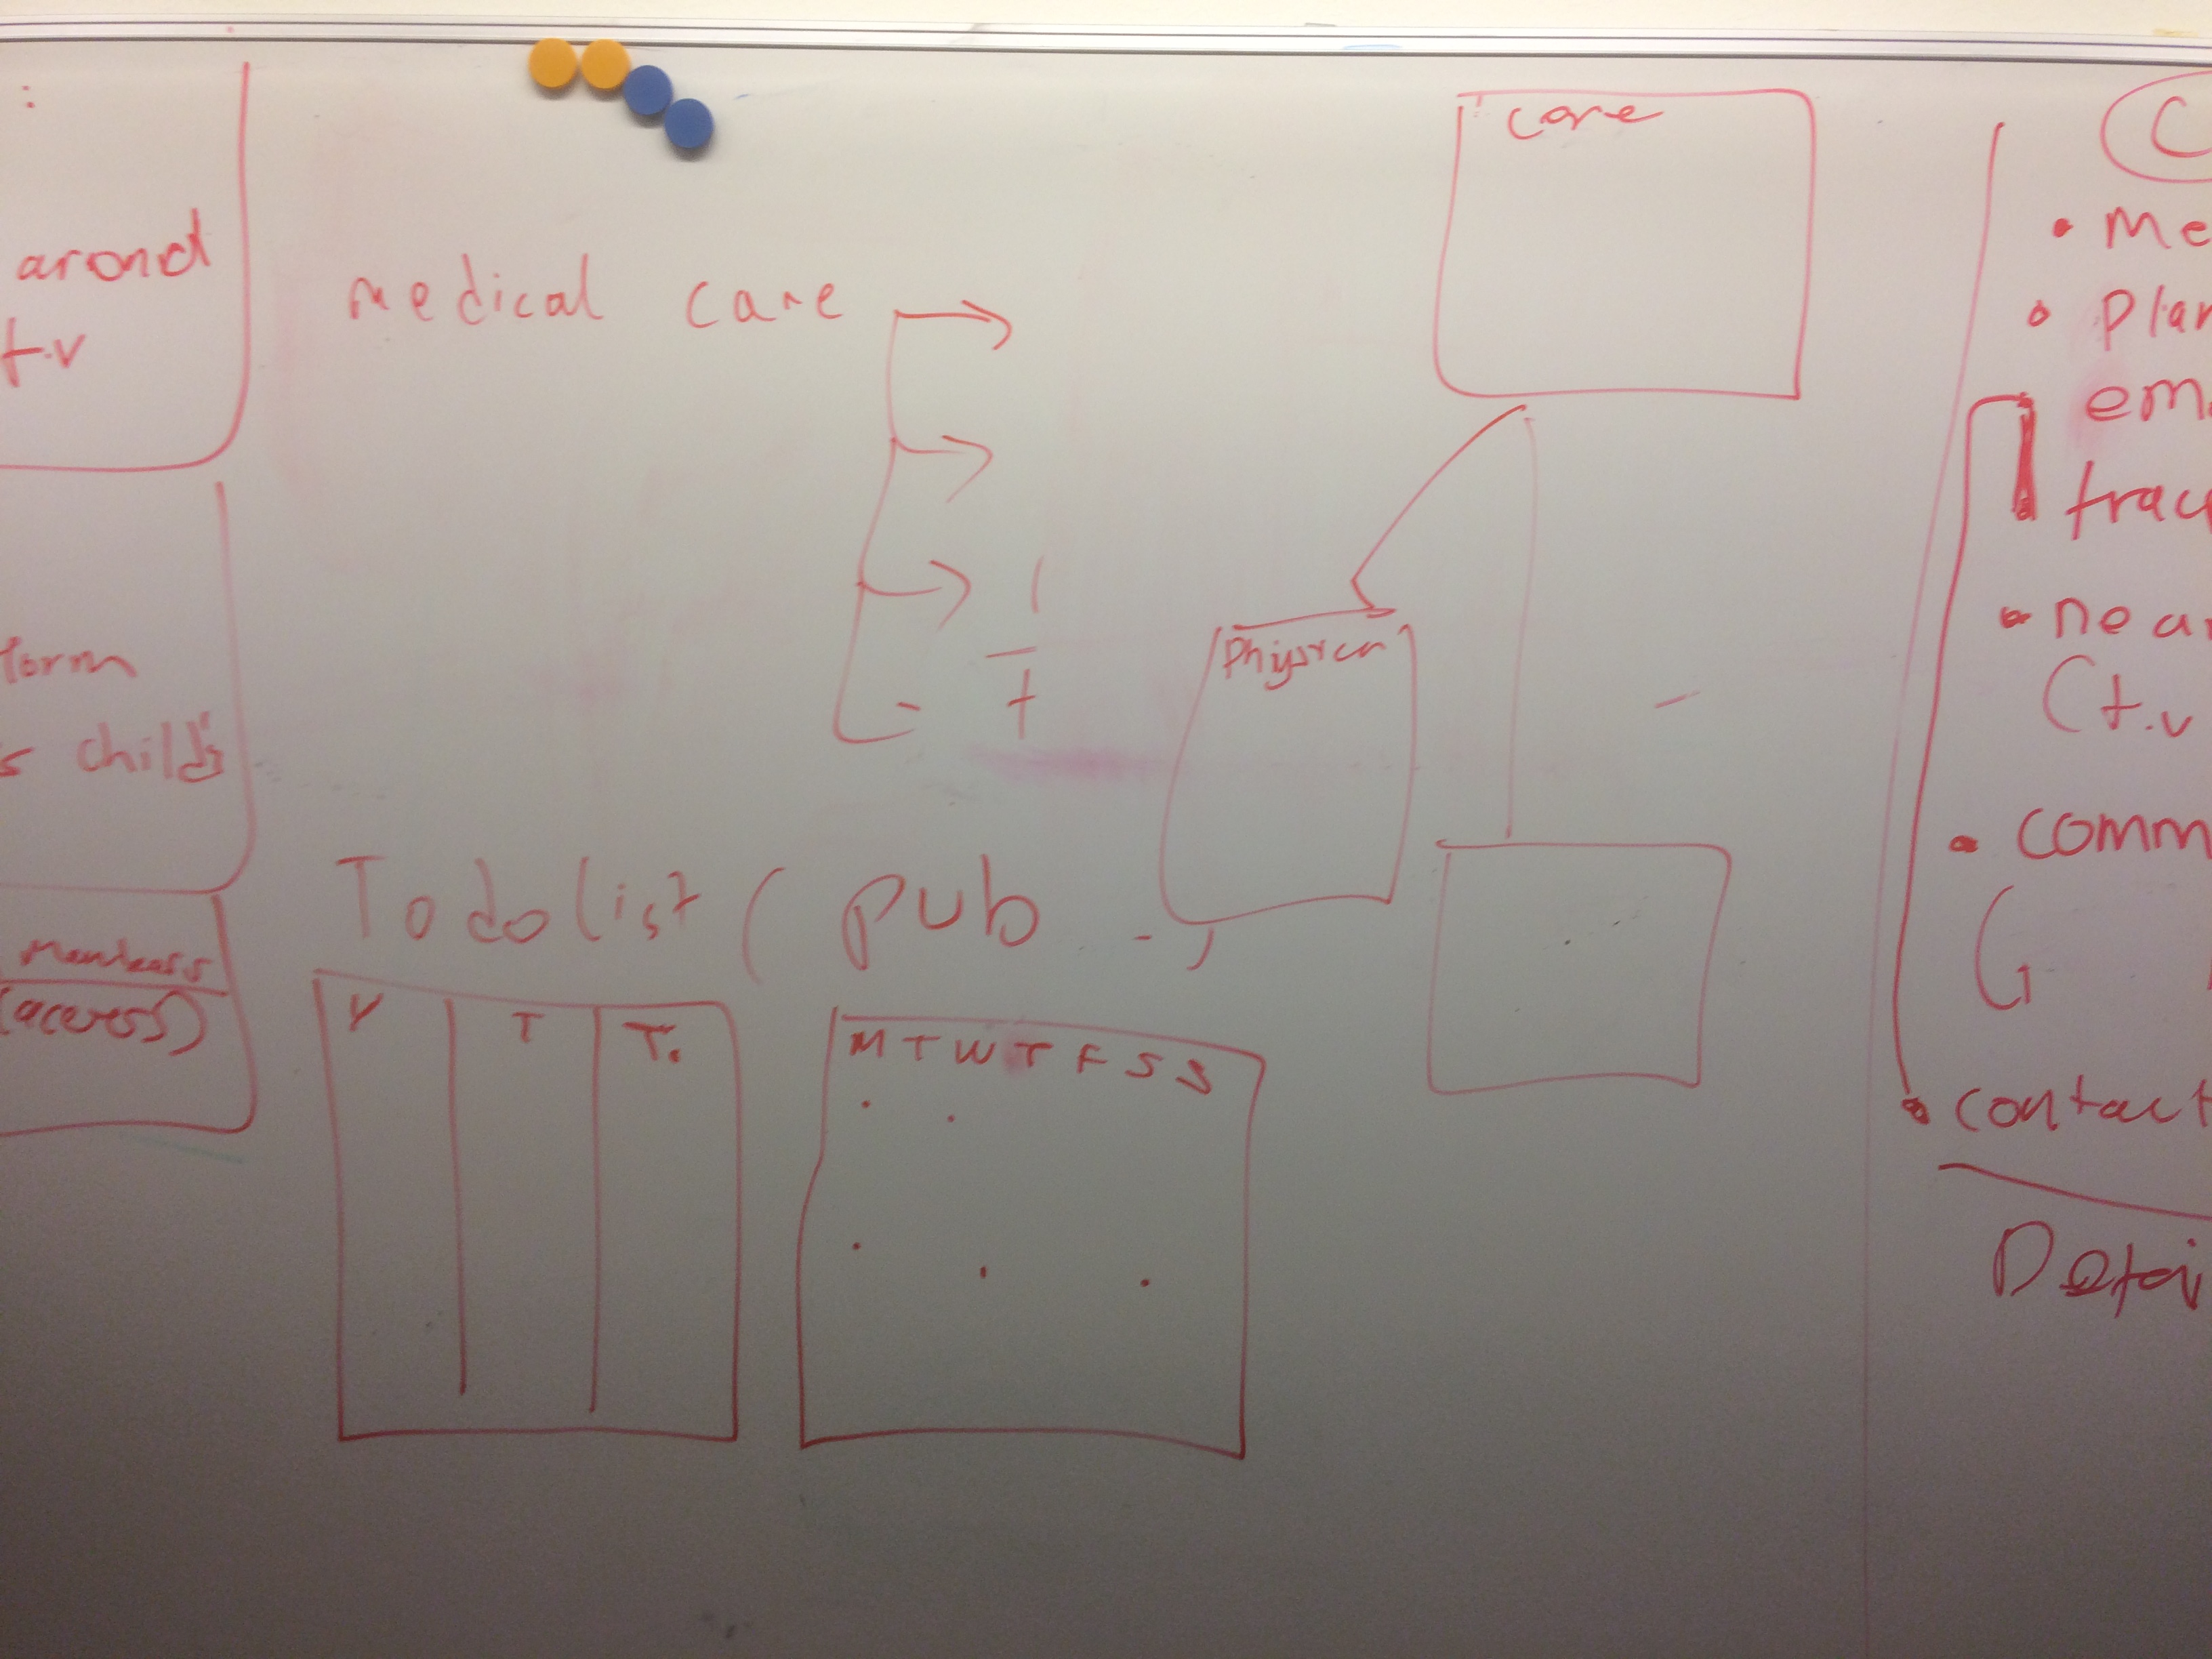 :
arond
t.v
form
s child's
Members
(access)
medical care
Todo list ( pub - )
Y T T.
M T W T F S S
Care
C
• Me
• Plan
em
trac
• ne a
(t.v
• comm
G
• contact
Detai